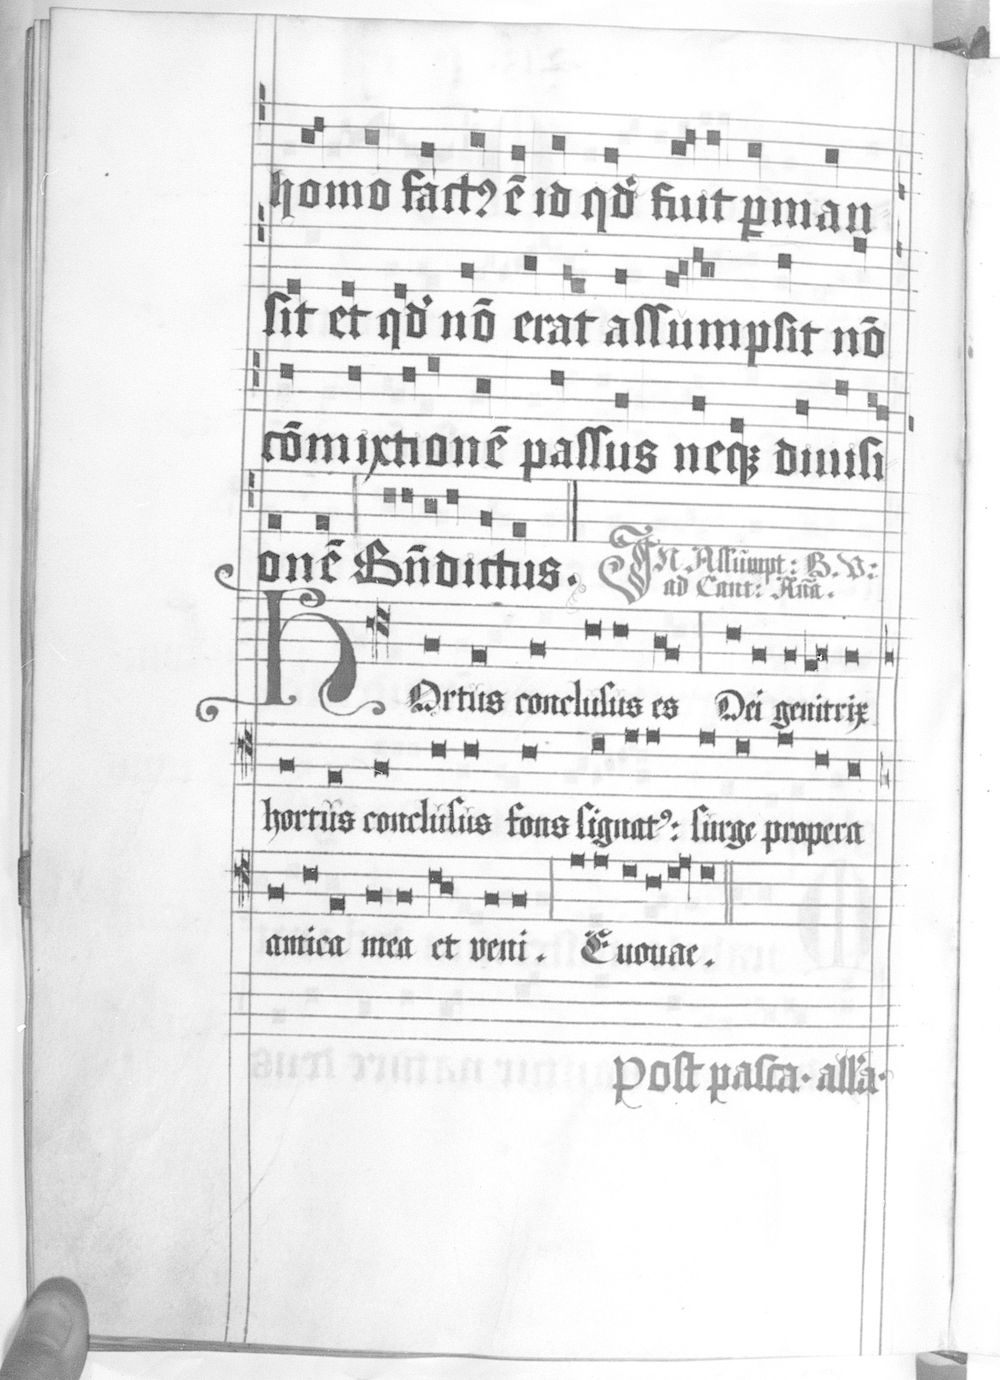 homo fact᾽ ē id qd̓ fuit ꝑman
sit et qd̓ nō erat assumpsit nō
cōmixtionē passus neqꝫ diuisi
onē Bn̄dictus.
In Assūmpt: B. V:
ad Cant: An̄a.
HOrtus conclusus es Dei genitrix
hortus conclusus fons signat᾽: surge propera
amica mea et veni. Euouae.
Post pasca· all'a·